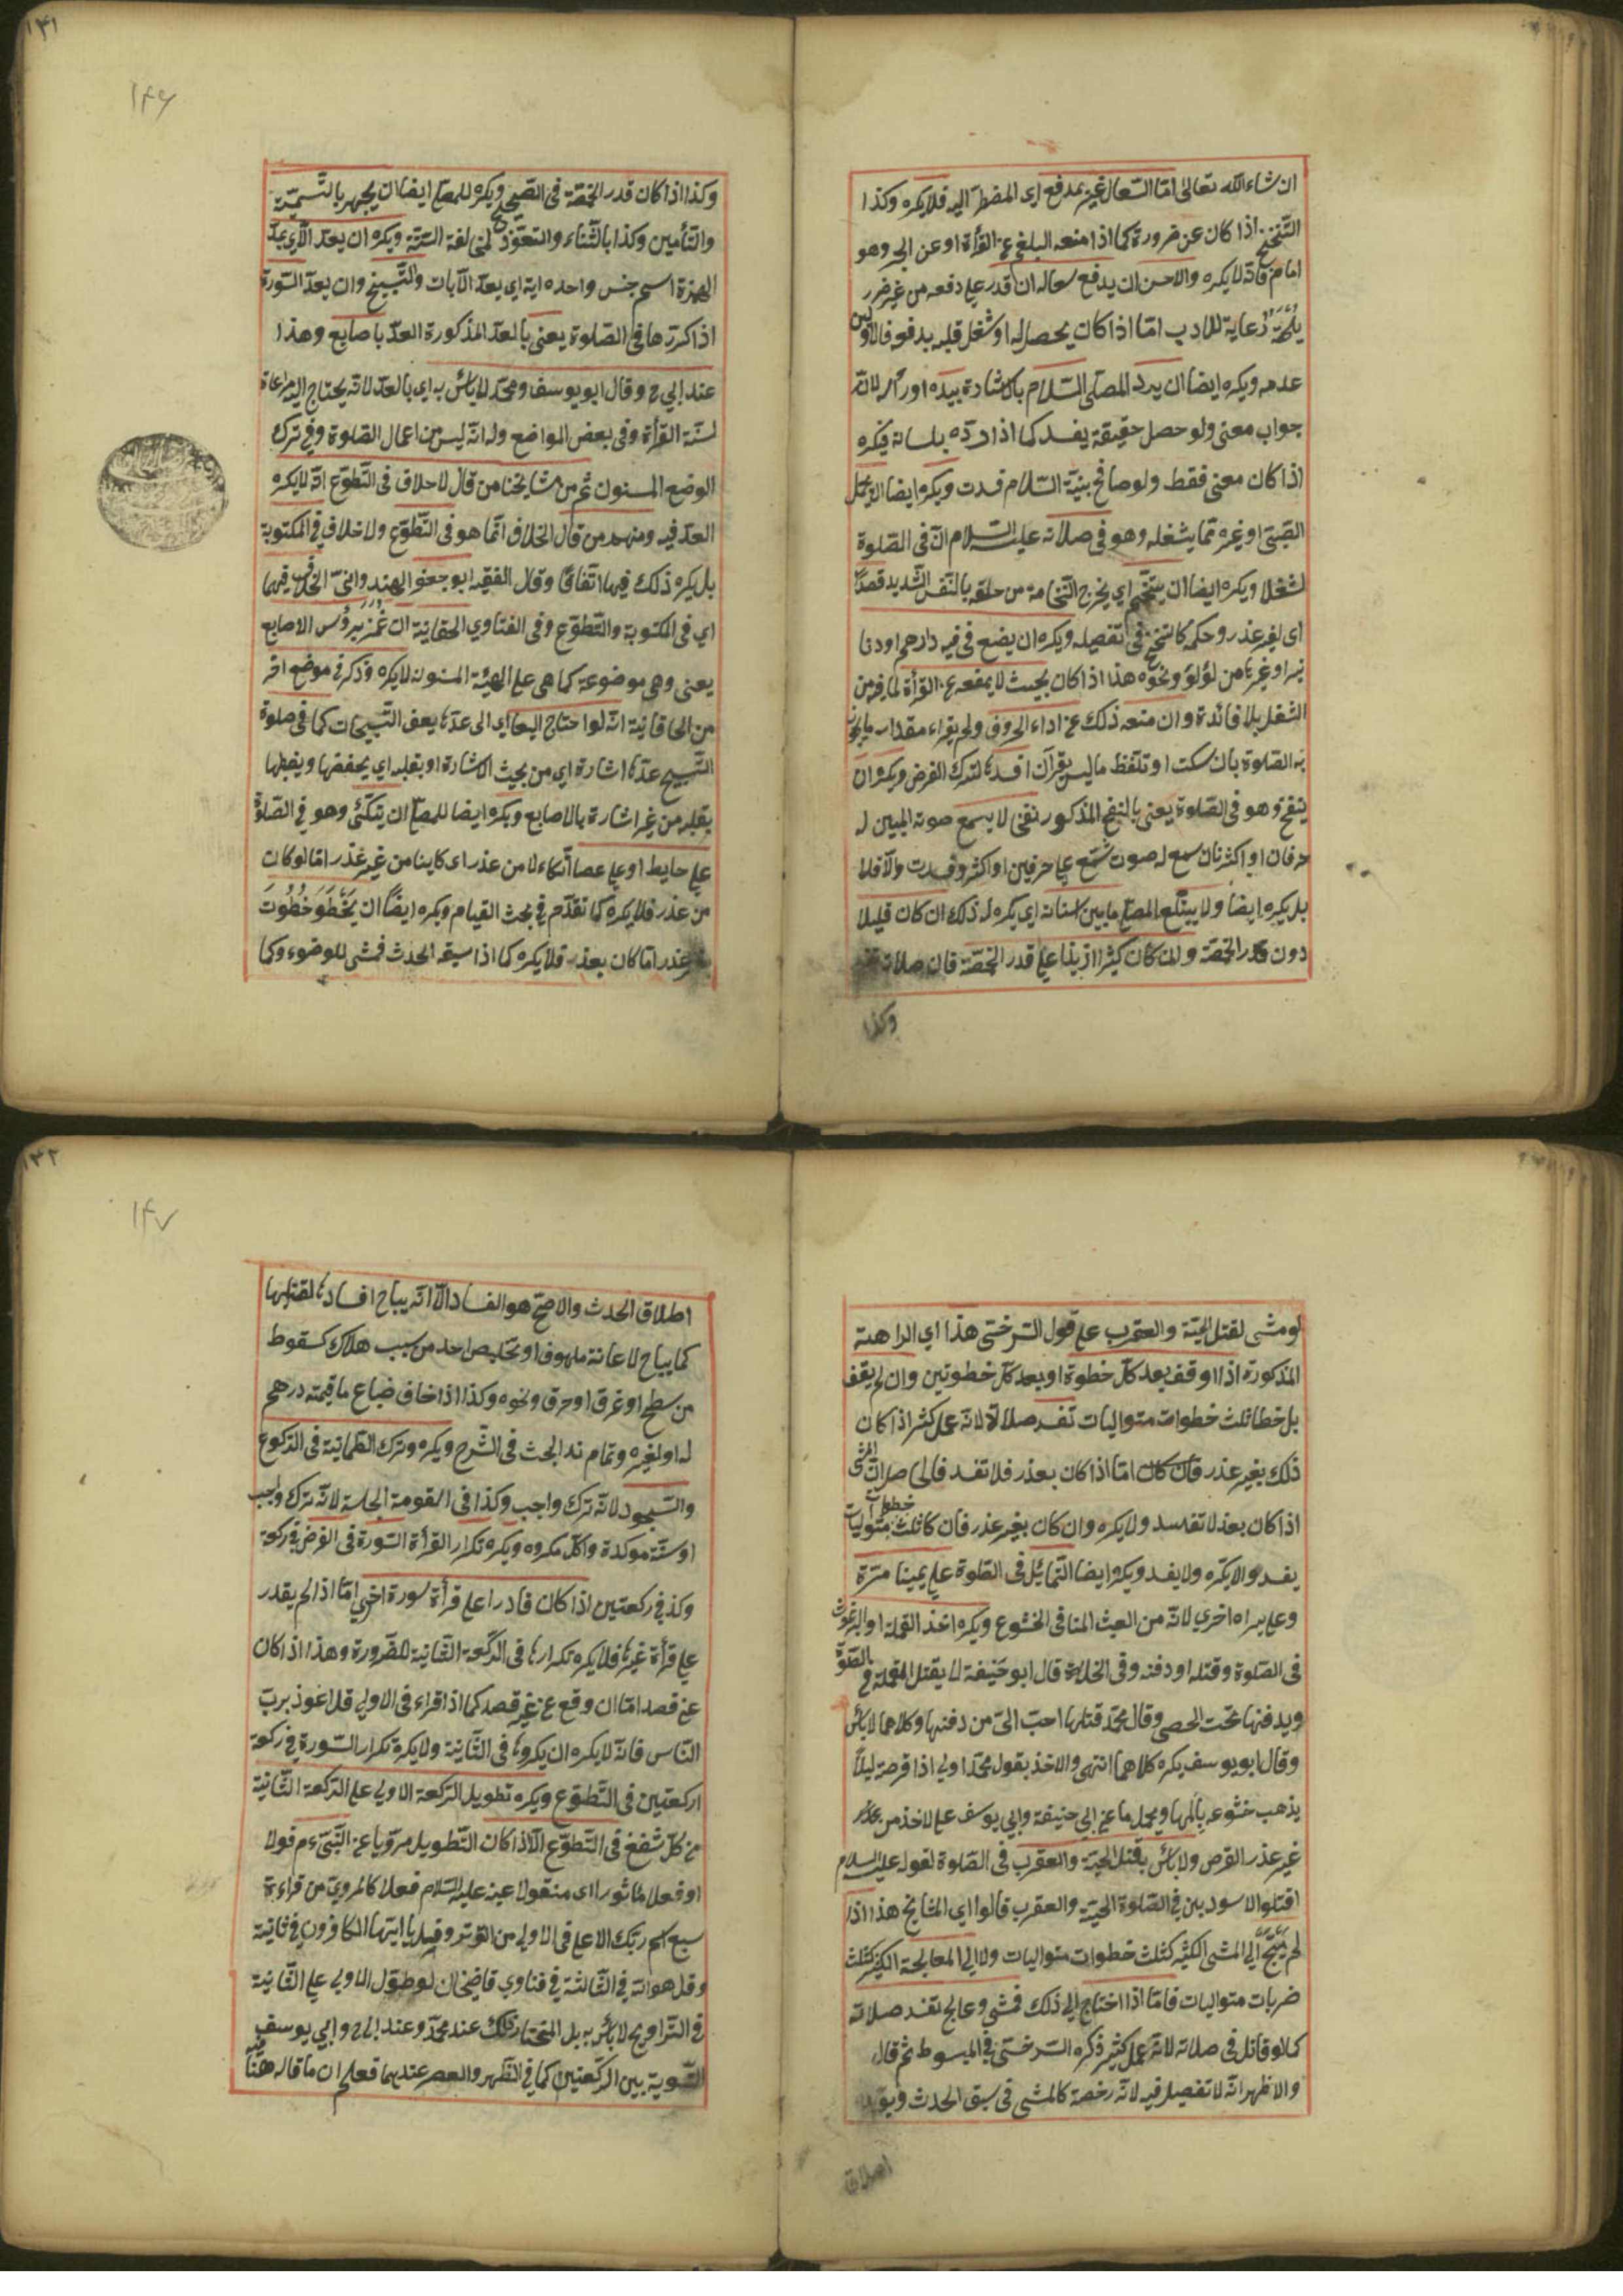 ان شاء الله تعالى امّا السّعال غير مدفع اي المضطرّ اليه فلا يكره وكذا
التّنحنح اذا كان عن ضرورة كما اذا منعه البلغم عن القرأة او عن الجهر وهو
امام فانّه لا يكره والاحسن ان يدفع سعاله ان قدر على دفعه من غير ضرر
يلحقه رعاية للادب امّا اذا كان يحصل له او شغل قلبه بدفعه فالاولى
عدمه ويكره ايضا ان يردّ المصلّى السّلام بالاشارة بيده او رأسه لانّه
جواب معنى ولو حصل حقيقة يفسد كما اذا ردّه بلسانه فيكره
اذا كان معنى فقط ولو صافح بنيّة السّلام فسدت ويكره ايضا ان يحمل
الصّبيّ او غيره ممّا يشغله وهو فى صلاته عليه السلام انّ فى الصّلوة
لشغلا ويكره ايضا ان يتنخّم اي يخرج النّخامة من حلقه بالنّفس الشّديد قصدًا
اى لغير عذر وحكمه كالتنحنح فى تفصيله ويكره ان يضع فى فيه دارهم او دنا
نير او غيرها من لؤلؤ ونحوه هذا اذا كان بحيث لا يمنعه عن القرأة لما فيه من
الشّغل بلا فائدة وان منعه ذلك عن اداء الحروف ولم يقراء مقدار ما يجوز
به الصّلوة بان سكت او تلفّظ ما ليس بقرآن افسدها لترك الفرض ويكره ان
ينفخ وهو فى الصّلوة يعنى بالنفخ المذكور نفخا لا يسمع صوته المبين له
حرفان او اكثر فان سمع له صوت يشتمل على حرفين او اكثر فسدت والاّ فلا
بل يكره ايضا ولا يبتلع المصلّى ما بين اسنانه اي يكره له ذلك ان كان قليلا
دون قدر الحمّصة وان كان كثيرا زيدا على قدر الحمّصة فان صلاته تفسد
وكذا
١٤١
١٤٦
وكذا اذا كان قدر الحمّصة فى الصّحيح ويكره للمصلّى ايضا ان يجهر بالتّسميّة
والتّأمين وكذا بالثّناء والتعوّذ لمخالفة السّنّة ويكره ان يعدّ الآي بمدّ
الهمزة اسم جنس واحده اية اي يعدّ الآيات والتّسبيح وان يعدّ السّورة
اذا كرّرها فى الصّلوة يعنى بالعدّ المذكورة العدّ باصابع وهذا
عند ابي ح وقال ابو يوسف ومحمّد لا بأس به اي بالعدّ لانّه يحتاج اليه مراعاة
لسنّة القرأة وفى بعض المواضع وله انّه ليس من اعمال الصّلوة وفي ترك
الوضع المسنون ثمّ من مشايخنا من قال لا خلاف فى التّطوّع انّه لا يكره
العدّ فيه ومنهم من قال الخلاف انّما هو فى التّطوّع ولا خلاف في المكتوبة
بل يكره ذلك فيها اتّفاقًا وقال الفقيه ابو جعفر الهندوانيّ الخلاف فيهما
اي فى المكتوبة والتّطوّع وفى الفتاوي الحقانية ان غمز برؤس الاصابع
يعنى وهى موضوعة كما هى على الهيئة المسنونة لا يكره وذكر في موضع اخر
من الخاقانية انّه لو احتاج اليها اي الى عدّها يعنى التّسبيحات كما فى صلوة
التّسبيح عدّها اشارة اي من بحيث الاشارة او بقلبه اي يحفظها ويضبطها
بقلبه من غير اشارة بالاصابع ويكره ايضا للمصلّى ان يتّكئ وهو في الصّلوة
على حايط او على عصا اتّكاء لا من عذر اى كاينا من غير عذر امّا لو كان
من عذر فلا يكره كما تقدّم في بحث القيام ويكره ايضًا ان يتخطّو خُطُوتَ
بغير عذر امّا كان بعذر فلا يكره كما اذا سبقه الحدث فمشى للوضوء وكما
لو مشى لقتل الحيّة والعقرب على قول السّرخسّى هذا اي الراهة
المذكورة اذا اوقف بعد كلّ خطوة او بعد كلّ خطوتين وان لم يقف
بل خطا ثلث خطوات متواليات تفسد صلاته لانّه عمل كثير اذا كان
ذلك بغير عذر فان كان امّا اذا كان بعذر فلا تفسد فالحاصل انّ المشى
اذا كان بعذ لا تفسد ولا يكره وان كان بغير عذر فان كا ثلث خطوات متوليات
يفسد والا يكره ولا يفسد ويكره ايضا التّمائل فى الصّلوة على يمينا مرّة
وعلى يسراه اخري لانّه من العبث المنافى الخشوع ويكره اخذ القملة او البرغوث
فى الصّلوة وقتله او دفنه وفى الخلاصة قال ابو حنيفة لا يقتل القملة في الصّلوة
ويدفنها تحت الحصى وقال محمّد قتلها احبّ الىّ من دفنها وكلاهما لا بأس
وقال ابو يوسف يكره كلاهما انتهى والاخذ بقول محمّد اولى اذا قرصة ليلاً
يذهب خشوعه بألمها ويحمل ما عن ابي حنيفة وابي يوسف على الاخذ من
غير عذر القرص ولا بأس بقتل الحيّة والعقرب فى الصّلوة لقوله عليه السلام
اقتلوا الاسودين في الصّلوة الحيّة والعقرب قالوا اي المشايخ هذا اذا
لم يحتج الي المشى الكثير كثلث خطوات متواليات ولا الي المعالجة الكثير كثلث
ضربات متواليات فامّا اذا احتاج الي ذلك فمشى وعالج تفسد صلاته
كما لو قاتل فى صلاته لانّه عمل كثير ذكره السّرخسّى في المبسوط ثم قال
والاظهر انّه لا تفصيل فيه لانّه رخصة كالمشى فى سبق الحدث ويؤيد
اطلاق
١٤٢
١٤٧
اطلاق الحدث والاصحّ هو الفساد الاّ انّه يباح افسادها لقتلها
كما يباح لاعانة ملهوف او تخليص احد من سبب هلاك كسقوط
من سطح او غرق او حرق ونحوه وكذا اذا خاف ضياع ما قيمته درهم
له او لغيره وتمام ند البحث فى الشّرح ويكره وترك الطّمانيّة فى الرّكوع
والسّجود لانّه ترك واجب وكذا فى القومة الجلسة لانّه ترك واجب
او سنّة موكدة واكلّ مكروه ويكره تكرار القرأة السّورة فى الفرض في ركعة
وكذ في ركعتين اذا كان قادرا على قرأة سورة اخري امّا اذا لم يقدر
على قرأة غيرها فلا يكره تكرارها فى الركّعة الثّانية للضّرورة وهذا اذا كان
عن قصد امّا ان وقع عن غير قصد كما اذا قراء فى الاولي قل اعوذ بربّ
النّاس فانّه لا يكره ان يكرّرها فى الثّانية ولا يكره تكرار السّورة في ركعة
اركعتين فى التّطوّع ويكره تطويل الركعة الاولي على الرّكعة الثّانية
من كلّ شفع فى التّطوّع الاّ اذا كان التّطويل مرويّا عن النّبيّ ءم قولا
او فعلا مأثورا اى منقولا عينه عليه السّلام فعلا كالمرويّ من قراءة
سبح اسم ربّك الاعلى فى الاولى من الوتر وقل يا ايّها الكافرون في ثانية
وقل هو اللّه في الثّالثة في فتاوي قاضيخان لو طوّل الاولى على الثّانية
فى التّراويح لا بأس به بل المختار ذلك عند محمّد وعند ابي ح وابي يوسف
التّسوية بين الركّعتين كما في الظّهر والعصر عندهما فعلم ان ما قاله ههنا